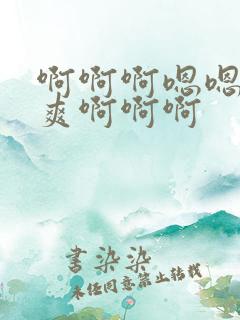 啊啊啊嗯嗯
爽啊啊啊
书染染
未经同意禁止转载